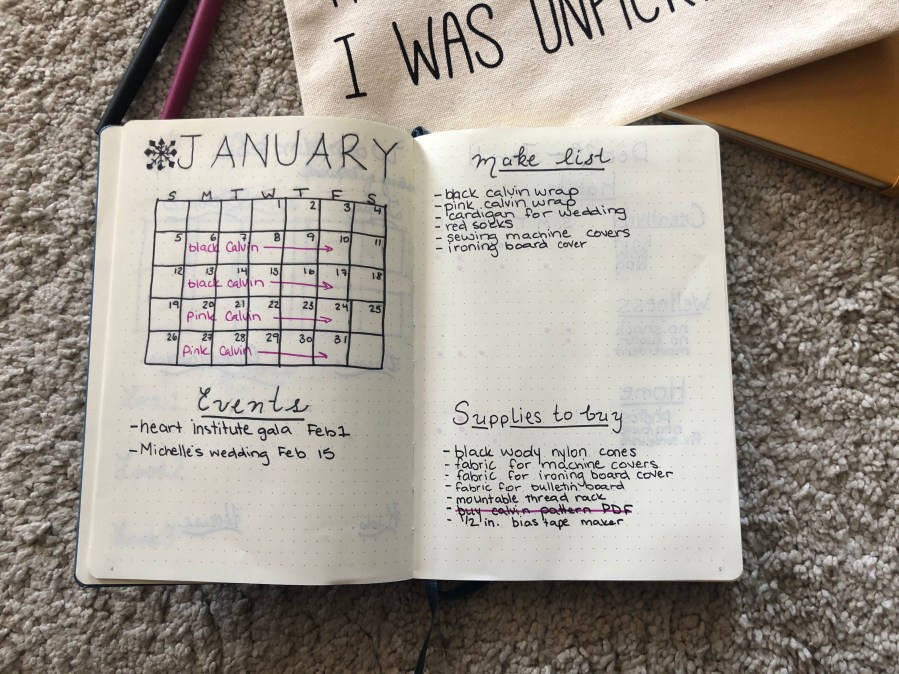 I WAS
JANUARY
S M T W T F S
1 2 3 4
5 6 7 8 9 10 11
black Calvin
12 13 14 15 16 17 18
black calvin
19 20 21 22 23 24 25
Pink Calvin
26 27 28 29 30 31
Pink Calvin
Events
-heart institute gala Feb 1
-Michelle's wedding Feb 15
4
make list
- black calvin wrap
- pink calvin wrap
- cardigan for wedding
- red socks
- sewing machine covers
- ironing board cover
Supplies to buy
- black wooly nylon cones
- fabric for machine covers
- fabric for ironing board cover
- fabric for bulletin board
- mountable thread rack
- buy calvin pattern PDF
- 1/2 in. bias tape maker
5